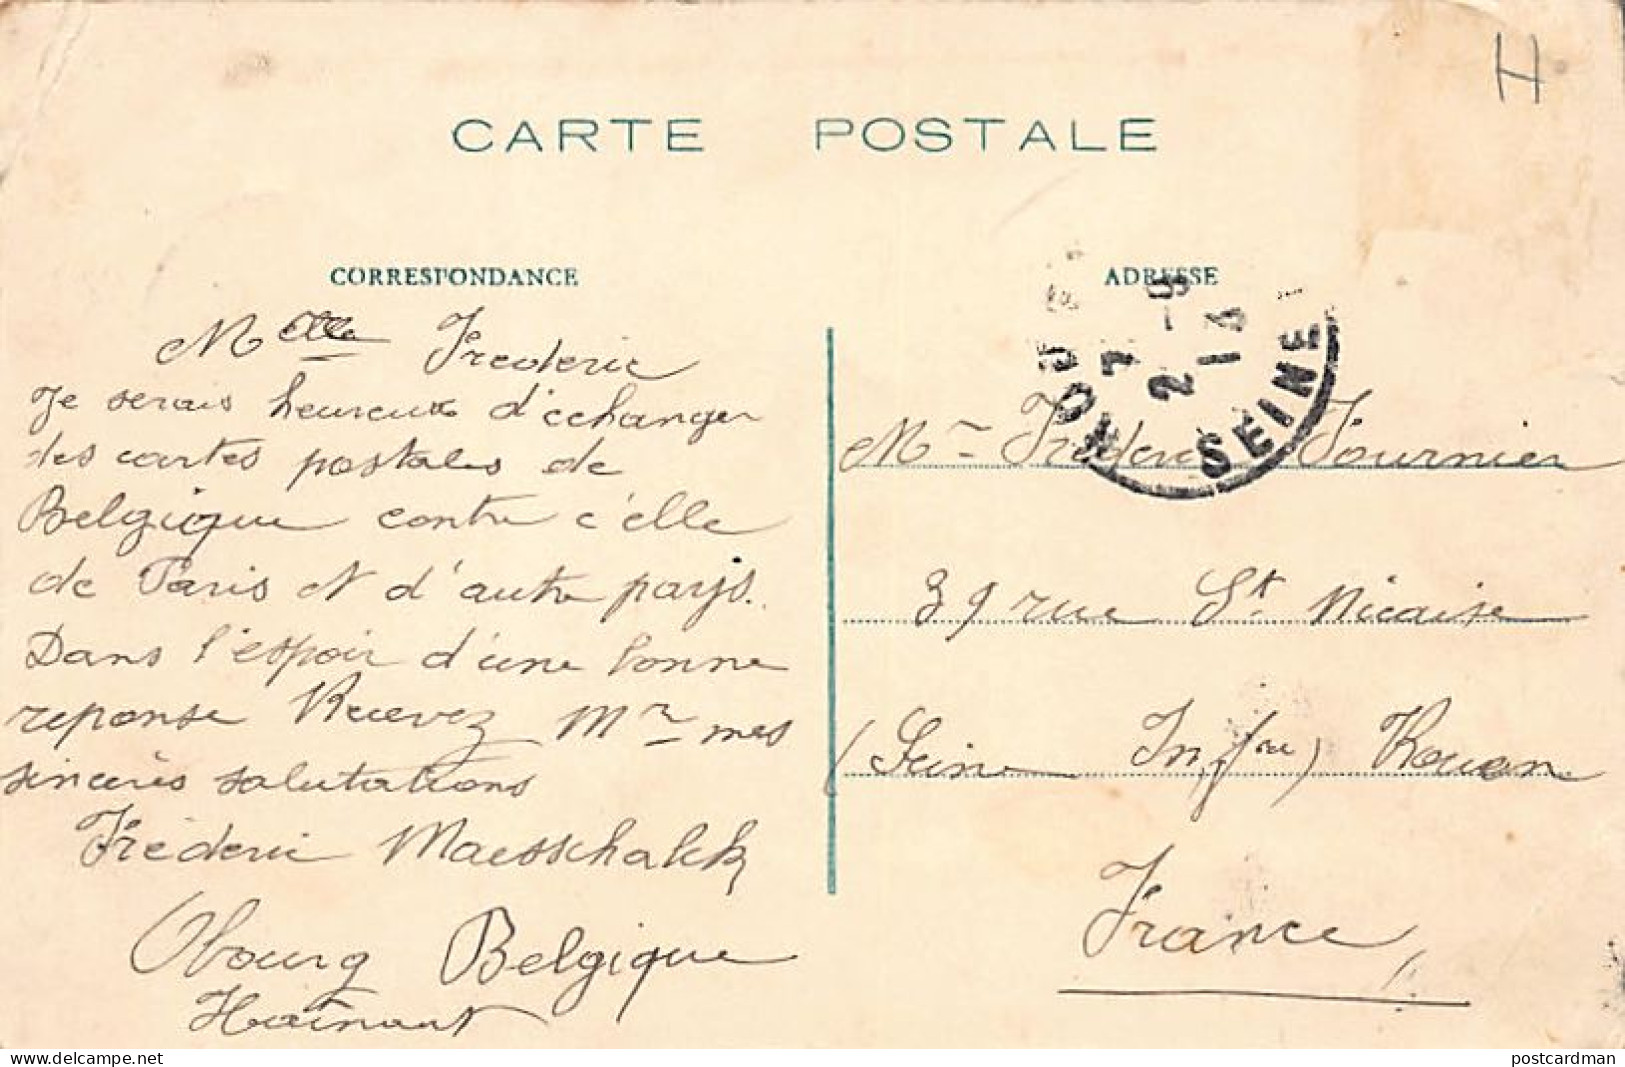 H
CARTE POSTALE
CORRESPONDANCE
Melle Frederic
Je serais heureux d'echanger
des cartes postales de
Belgique contre c'elle
de Paris et d'autre pays.
Dans l'espoir d'une bonne
reponse Recevez Mr mes
sincères salutations
Fréderic Maesschalck
Obourg Belgique
Hainaut
ADRESSE
7 - 9
2 14
SEINE
Mr Fréderic Fournier
39 rue St Nicaise
(Seine Infre) Rouen
France
postcardman